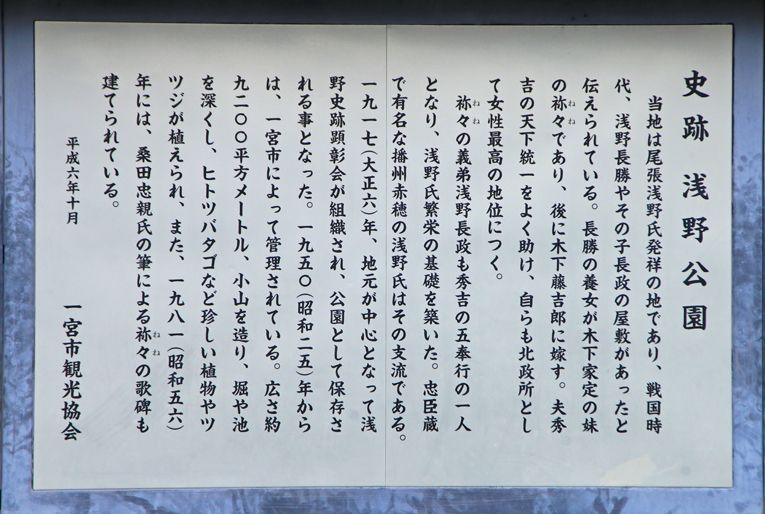 史跡 浅野公園
当地は尾張浅野氏発祥の地であり、戦国時
代、浅野長勝やその子長政の屋敷があったと
伝えられている。長勝の養女が木下家定の妹
の祢々(ねね)であり、後に木下藤吉郎に嫁す。夫秀
吉の天下統一をよく助け、自らも北政所とし
て女性最高の地位につく。
祢々(ねね)の義弟浅野長政も秀吉の五奉行の一人
となり、浅野氏繁栄の基礎を築いた。忠臣蔵
で有名な播州赤穂の浅野氏はその支流である。
一九一七(大正六)年、地元が中心となって浅
野史跡顕彰会が組織され、公園として保存さ
れる事となった。一九五〇(昭和二五)年から
は、一宮市によって管理されている。広さ約
九二〇〇平方メートル、小山を造り、堀や池
を深くし、ヒトツバタゴなど珍しい植物やツ
ツジが植えられ、また、一九八一(昭和五六)
年には、桑田忠親氏の筆による祢々(ねね)の歌碑も
建てられている。
平成六年十月
一宮市観光協会